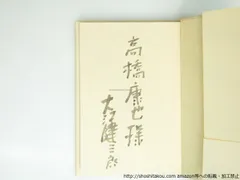 高橋康也様
大江健三郎
http://shoshitakou.com/aramon等への転載・加工禁止